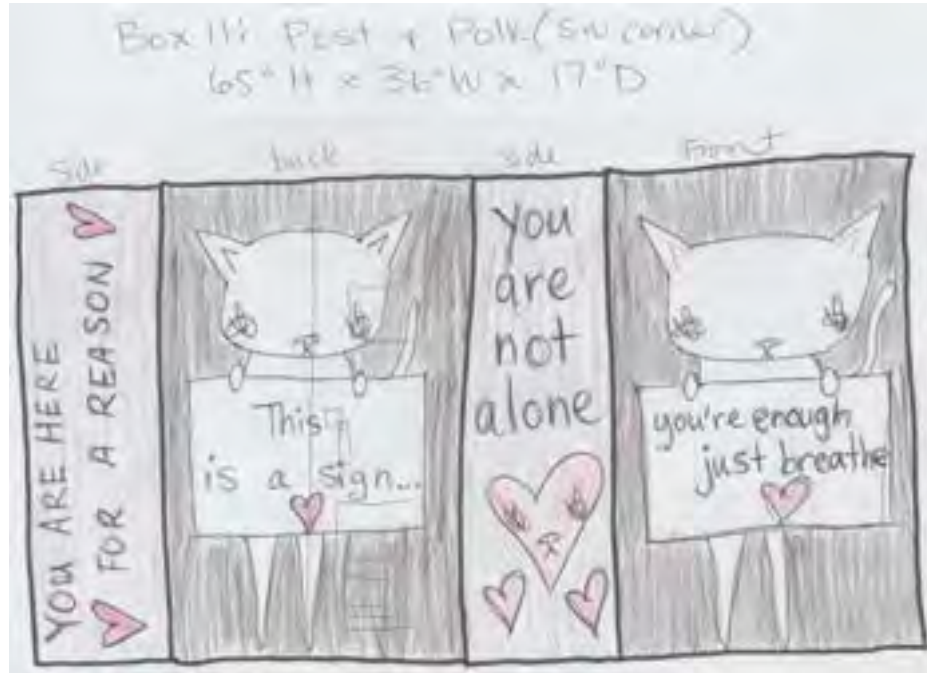 Box 11: Post + Polk (SW corner)
65" H x 36" W x 17" D
side
back
side
Front
YOU ARE HERE
FOR A REASON
This
is a sign...
you
are
not
alone
you're enough
just breathe